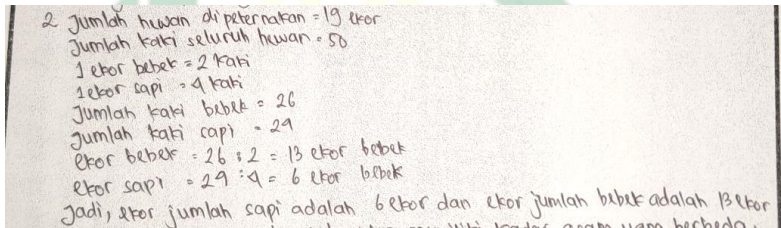 2 Jumlah hewan di peternakan = 19 ekor
Jumlah kaki seluruh hewan = 50
1 ekor bebek = 2 kaki
1 ekor sapi = 4 kaki
Jumlah kaki bebek = 26
Jumlah kaki sapi = 24
ekor bebek = 26 : 2 = 13 ekor bebek
ekor sapi = 24 : 4 = 6 ekor bebek
Jadi, ekor jumlah sapi adalah 6 ekor dan ekor jumlah bebek adalah 13 ekor
kadar asam yang berbeda.